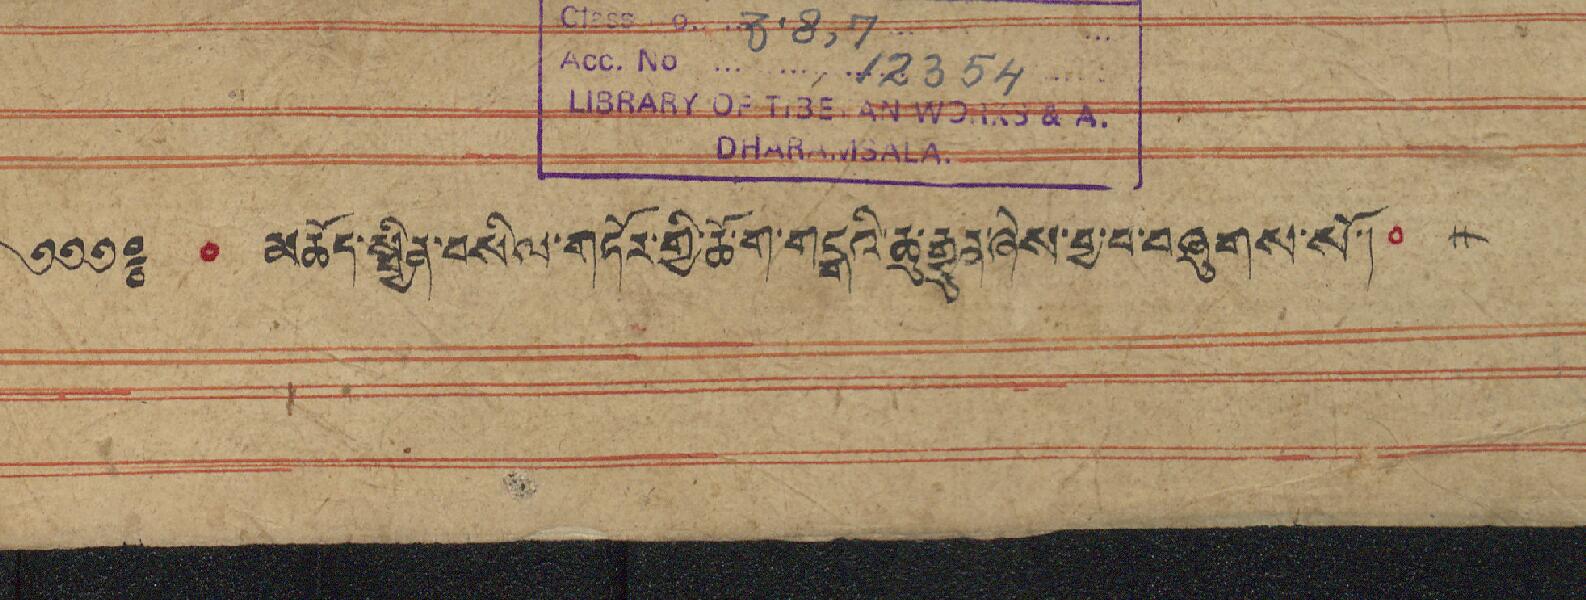 Class No. ... 3.8,7 ...
Acc. No ... 12354 ...
LIBRARY OF TIBETAN WORKS & A.
DHARAMSALA.
༄༅༅༔ ༠ མཆོད་སྦྱིན་བསིལ་གཏོར་གྱི་ཆོ་ག་གངྒཱའི་ཆུ་རྒྱུན་ཞེས་བྱ་བ་བཞུགས་སོ། ༠